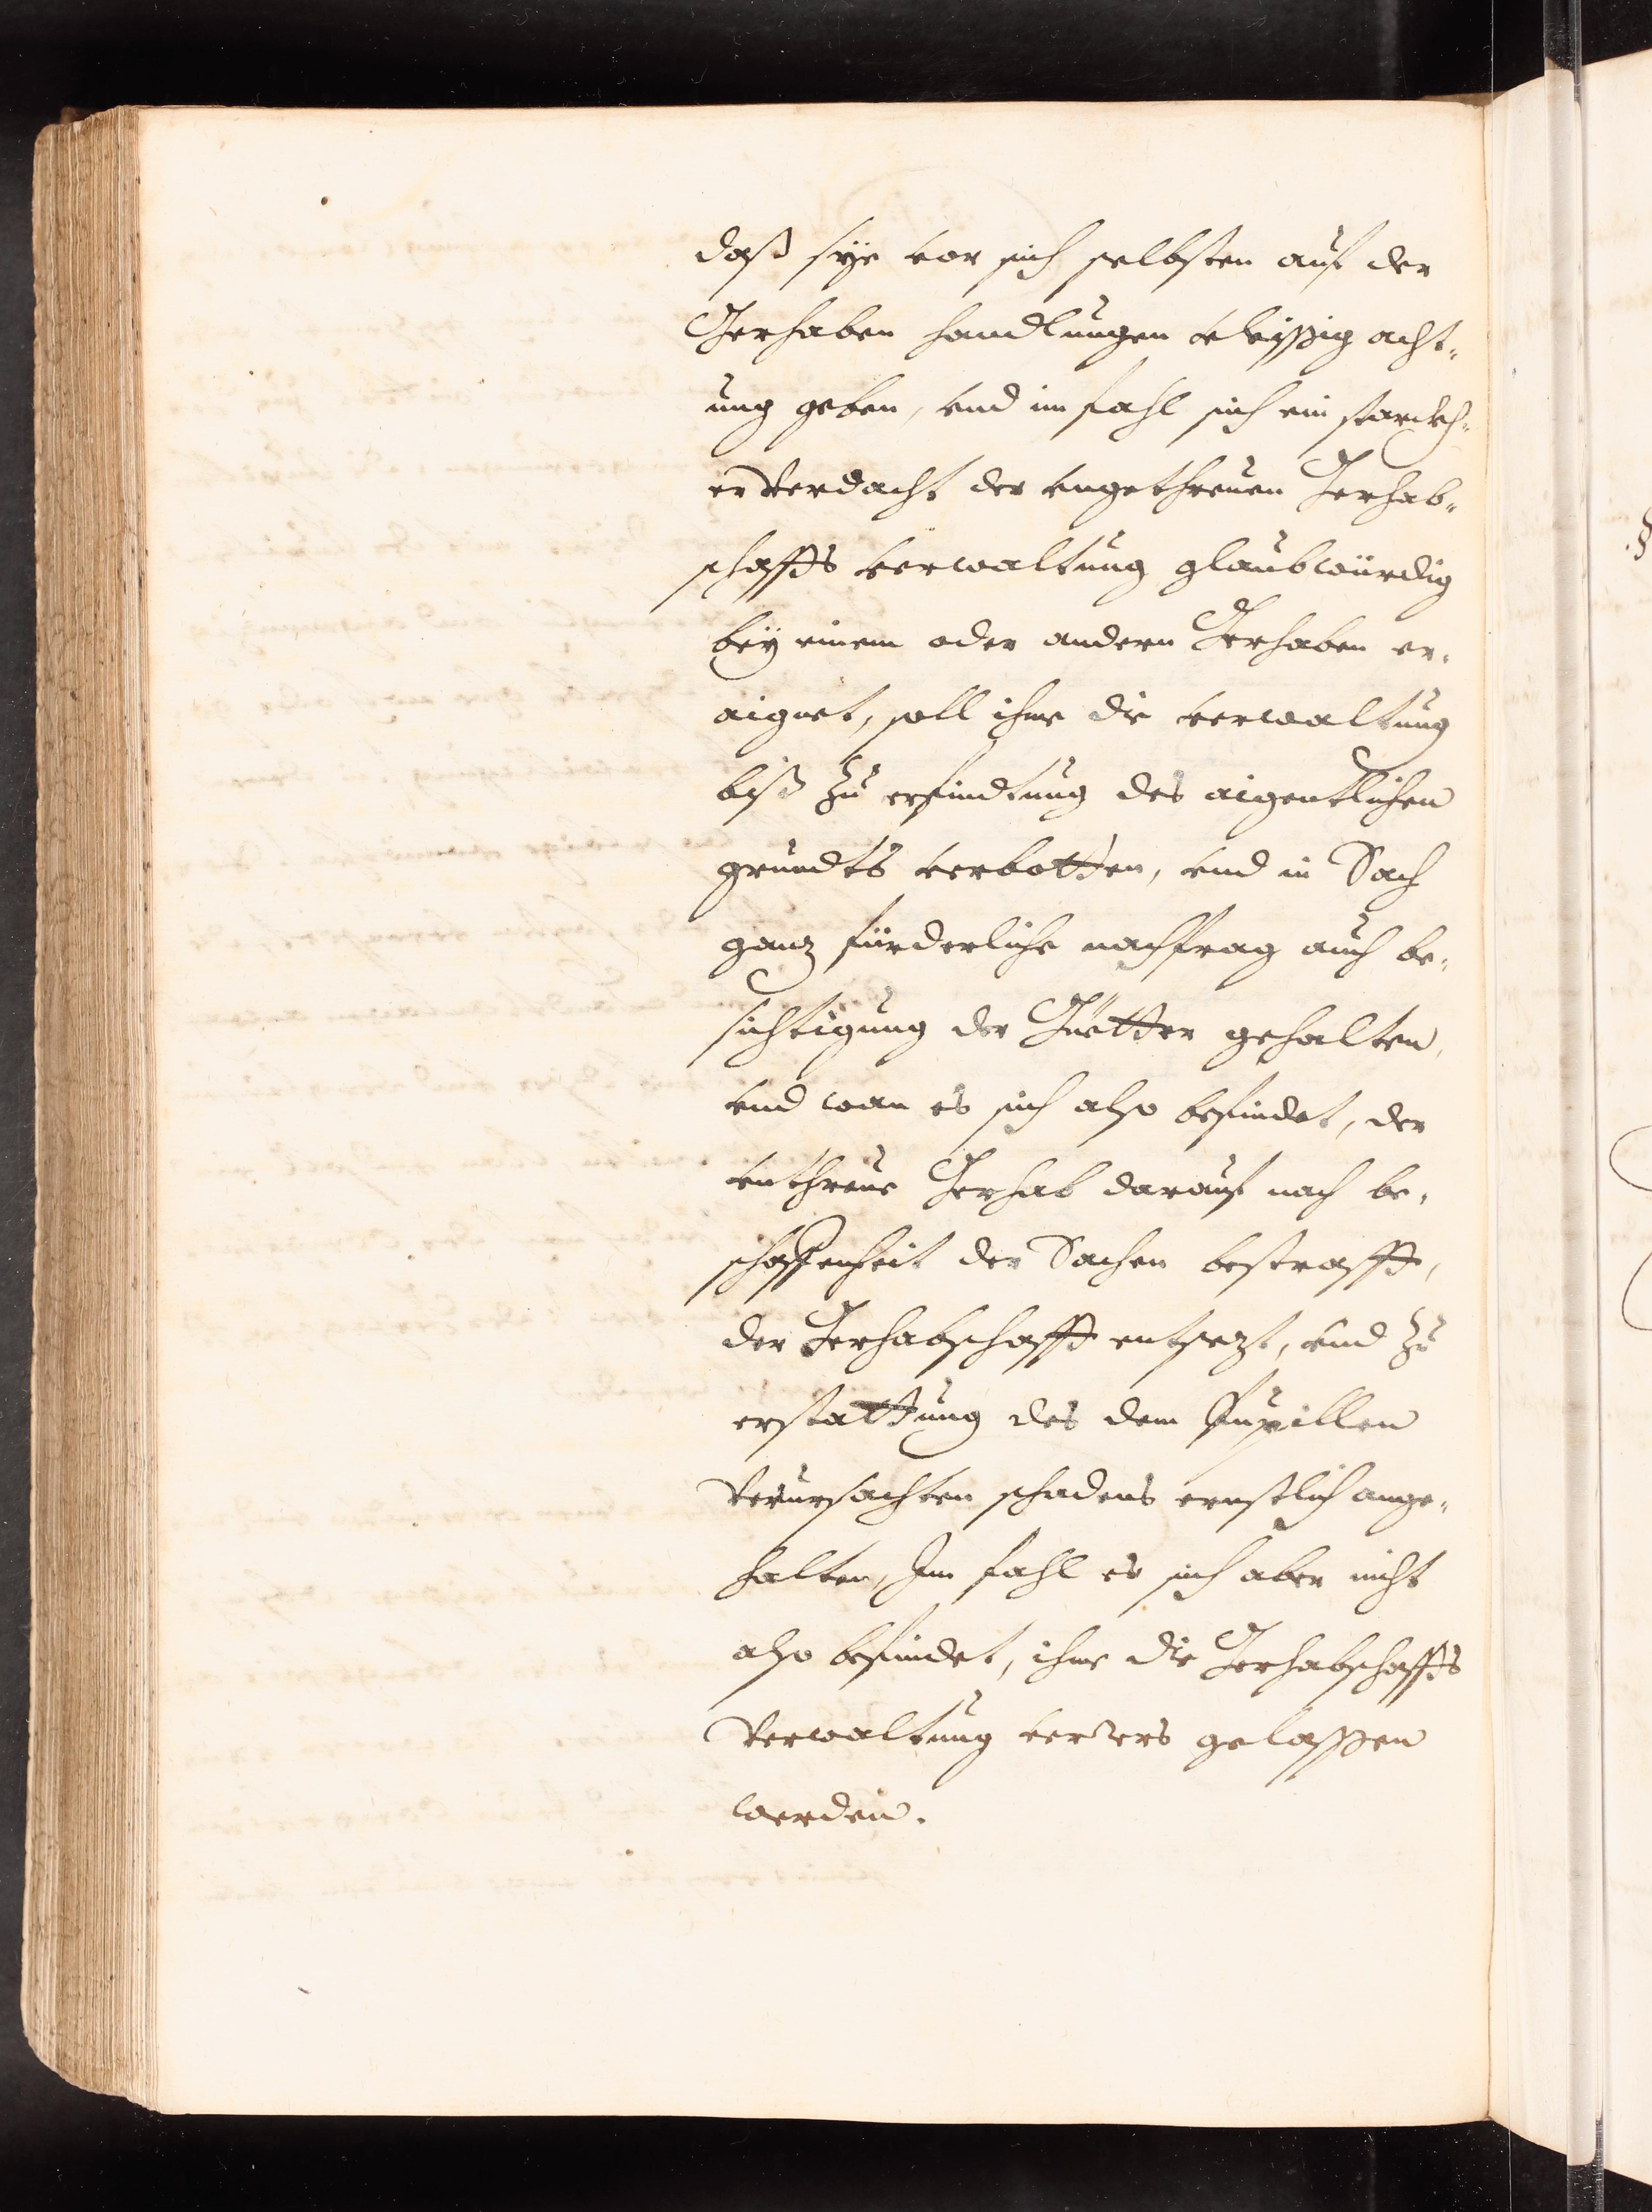 daß sye vor sich selbsten auf der
Gerhaben handlungen vleissig acht-
ung geben, vnd im fahl sich ein starckh-
er Verdacht der vngethreuen Gerhab-
schaffts verwaltung glaubwürdig
bey einem oder andern Gerhaben er-
aignet, soll ihme die verwaltung
biß zu erfindtung des aigentlichen
grundts verbotten, vnd in Sach
ganz fürderliche nachfrag auch be-
sichtigung der Güetter gehalten,
vnd wan es sich also befindet, der
vnthreue Gerhab darauf nach be-
schaffenheit der Sachen bestrafft,
der Gerhabschafft entsezt, vnd zu
erstattung des dem Pupillen
Verursachten schadens ernstlich ange-
halten, Im fahl es sich aber nicht
also befindet, ihme die Gerhabschaffts
Verwaltung verers gelassen
werden.